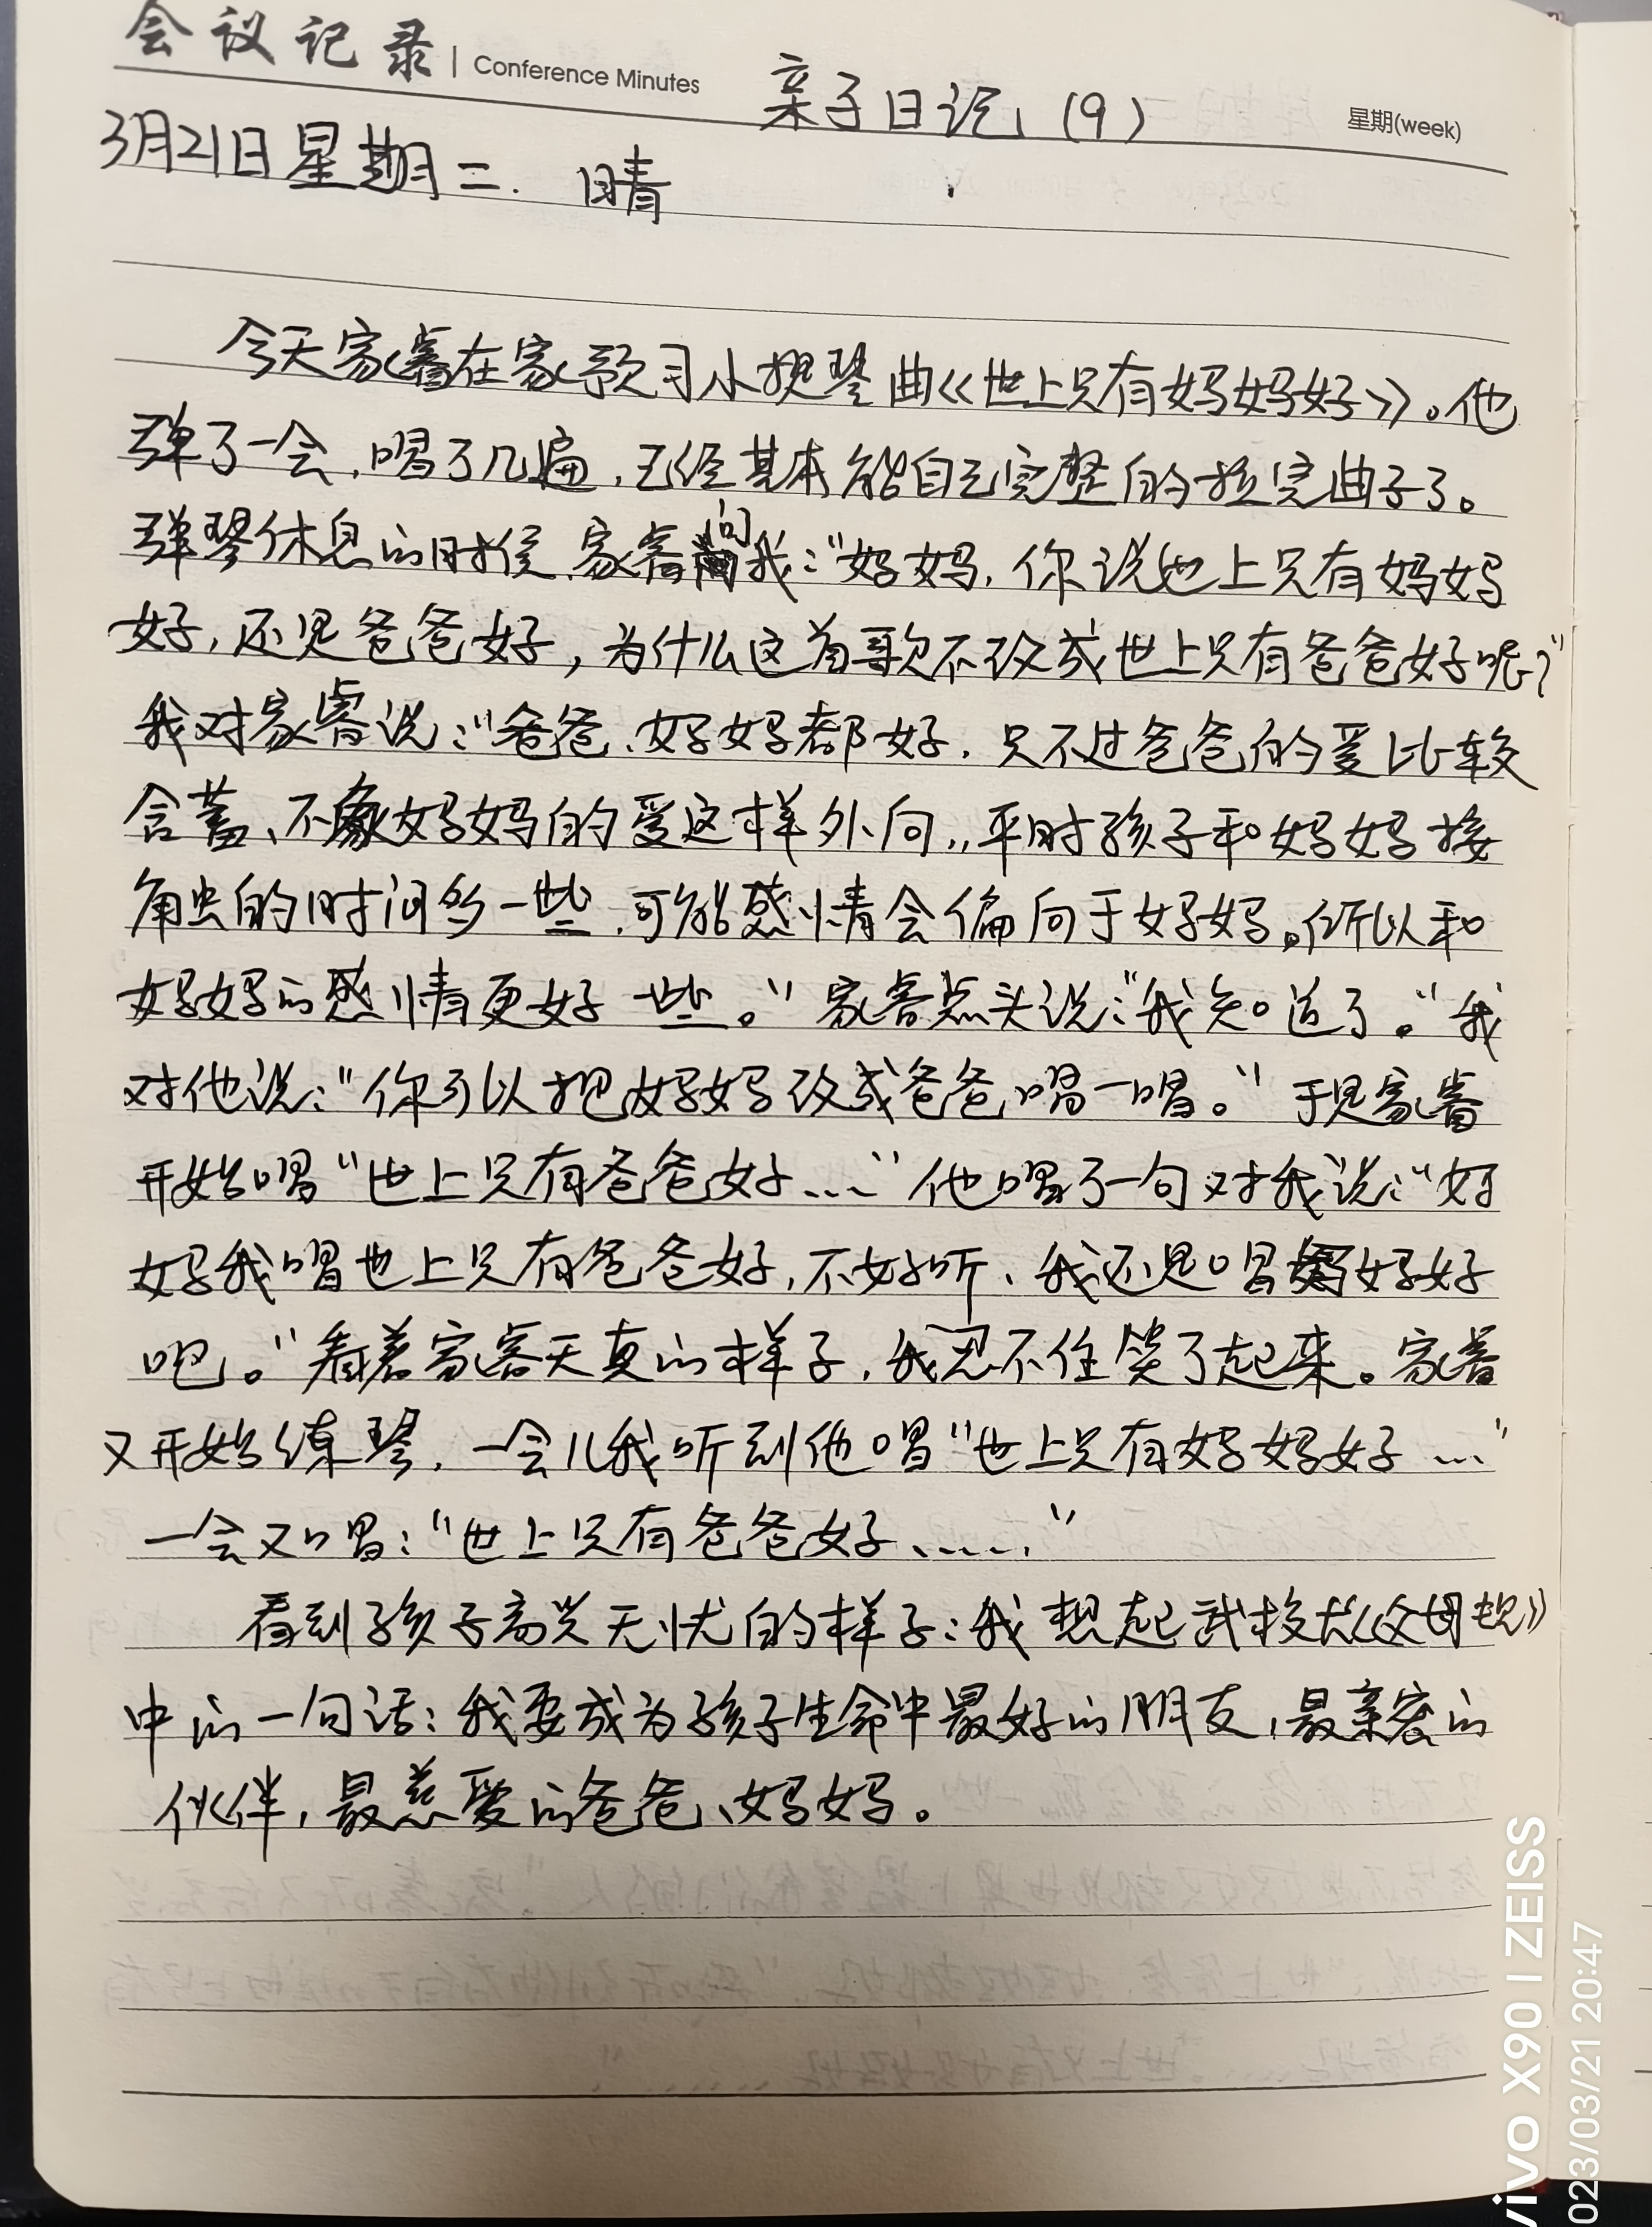 会议记录 | Conference Minutes 亲子日记（9） 星期(week)
3月21日星期二. 晴
今天家睿在家预习小提琴曲《世上只有妈妈好》。他
弹了一会，唱了几遍，已经基本能自己完整的拉完曲子了。
弹琴休息的时候，家睿问我：“妈妈，你说世上只有妈妈
好，还是爸爸好，为什么这首歌不改成世上只有爸爸好呢？”
我对家睿说：“爸爸、妈妈都好，只不过爸爸的爱比较
含蓄、不像妈妈的爱这样外向，平时孩子和妈妈接
触的时间多一些，可能感情会偏向于妈妈。所以和
妈妈的感情更好一些。”家睿点头说：“我知道了。”我
对他说：“你可以把妈妈改成爸爸唱一唱。”于是家睿
开始唱“世上只有爸爸好...”他唱了一句对我说：“妈
妈我唱世上只有爸爸好，不好听、我还是唱妈妈好
吧。”看着家睿天真的样子，我忍不住笑了起来。家睿
又开始练琴，一会儿我听到他唱“世上只有妈妈好...”
一会又唱：“世上只有爸爸好......”
看到孩子高兴无忧的样子：我想起武校长《父母规》
中的一句话：我要成为孩子生命中最好的朋友，最亲密的
伙伴，最慈爱的爸爸、妈妈。
vivo X90 | ZEISS
023/03/21 20:47